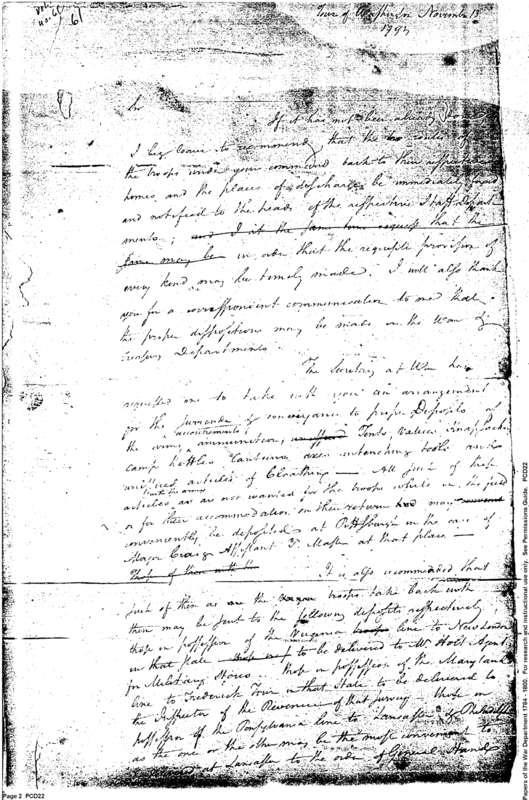 61
Town of Washington November 13
1794
Sir
If it has not been already
I beg leave to recommend that the routes of
the troops under your command back to their respective
homes, and the places of discharge be immediately fixed
and notifed to the heads of the respective Staff Depart
ments; and I at the same time request that the
same may be in order that the requisite provision of
every kind may be timely made. I will also thank
you for a correspondent communication to me that
the proper dispositions may be made in the War &
Treasury Departments.
The Secretary at War has
requested me to take with you an arrangement
for the surrender & conveyance to proper Deposits of
the arms, accoutrements, ammunition, Tents, Valices Knapsacks,
camp kettles Canteens, axes intrenching tools and
unissued articles of Cloathing — All such of these
articles as are not wanted for the troops while in the field
or for their accommodation on their return and may
conveniently be deposited at Pittsburgh in the care of
Major Craig Assistant Qr Master at that place —
It is also recommended that
such of them as the troops take back with
them may be sent to the following deposits respectively
those in possession of the Virginia line to New London
in that State to be delivered to Mr Holt Agent
for Military Stores those in possession of the Maryland
line to Frederick Town in that State to be delivered to
the Inspector of the Revenue of that Survey those in
possession of the Pensylvania line to Lancaster or Philadelphia
as the one or the other may be the most convenient to
at Lancaster to the order of General Hand
Page 2 PCD22
of the War Department 1784 - 1800. For research and instructional use only. See Permissions Guide. PCD22